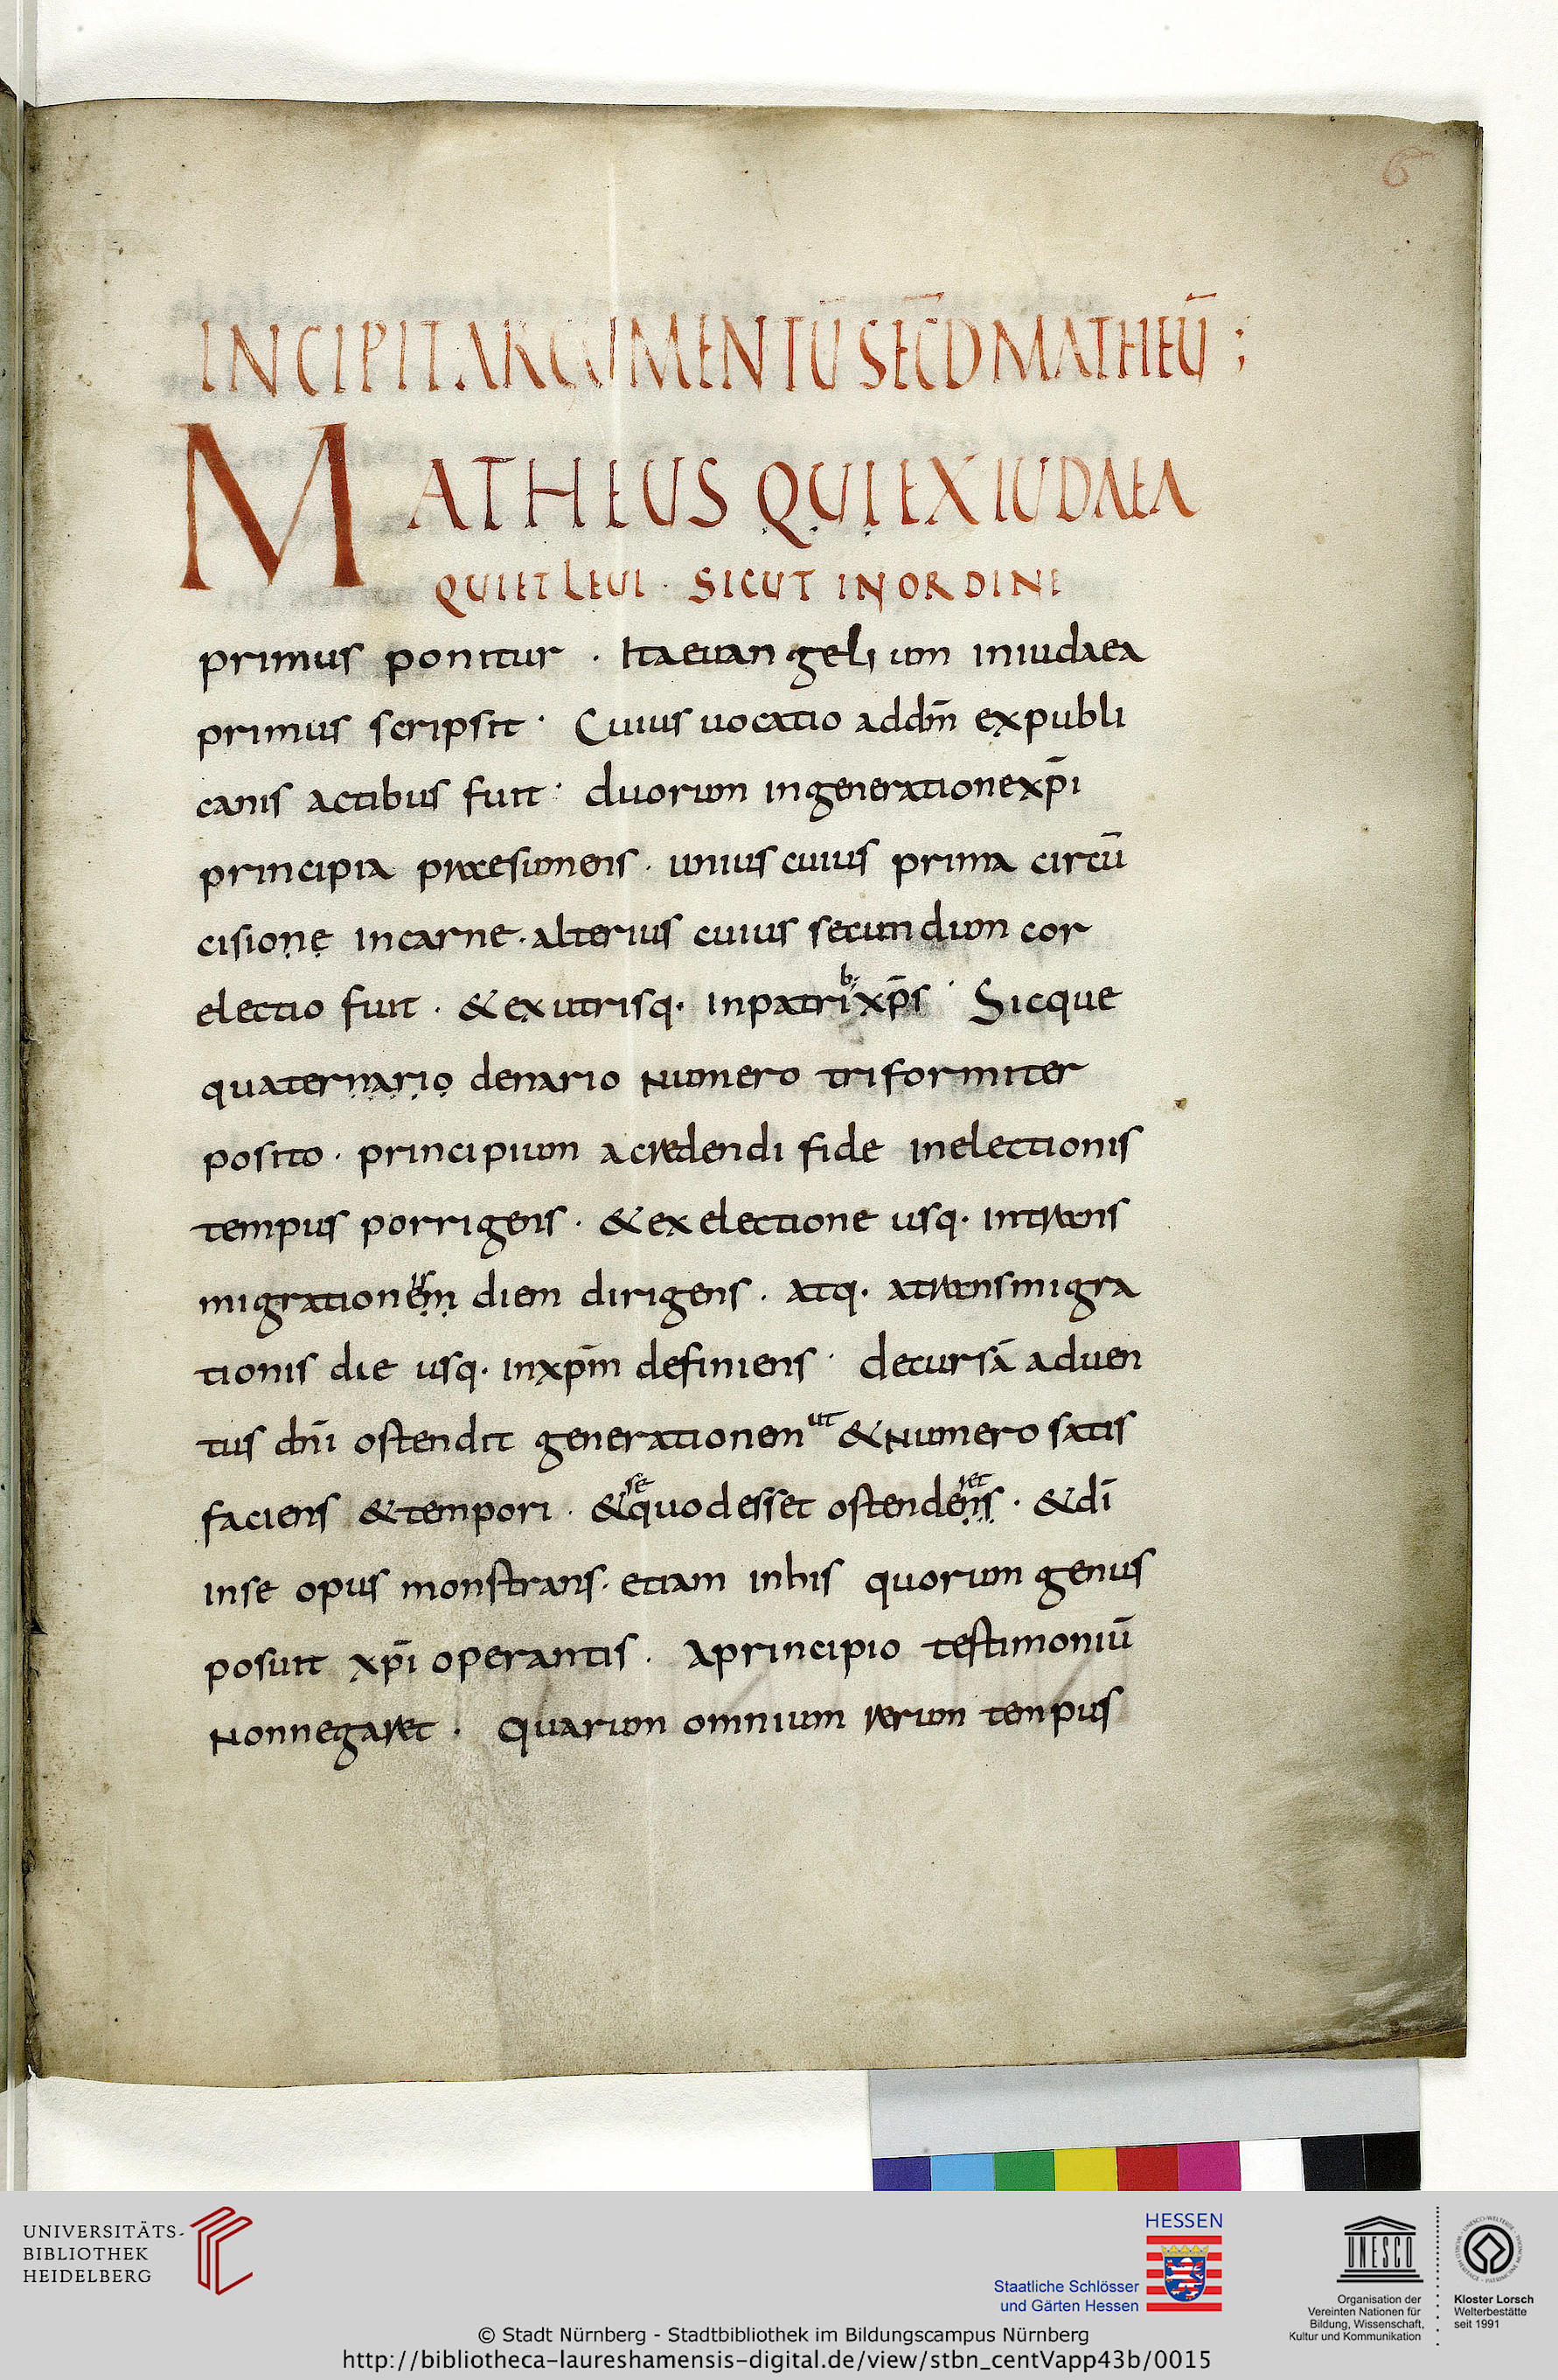 6
INCIPIT ARGUMENTŪ SEC̄D MATHEŪ ;
MATHEUS QUI EX IUDAEA
QUI ET LEUI · SICUT IN ORDINE
primus ponitur · Ita euangelium iniudaea
primus scripsit · Cuius uocatio addm̄ expubli
canis actibus fuit · duorum ingenerationexp̄i
principia praesumens · unius cuius prima circū
cisione incarne · alterius cuius secundum cor
electio fuit · & ex utrisq· inpatrib; xp̄s · Sicque
quaternario denario numero triformiter
posito · principium acredendi fide inelectionis
tempus porrigens · & ex electione usq· intrans
migrationemis diem dirigens · atq· atransmigra
tionis die usq· inxp̄m definiens · decursā aduen
tus dn̄i ostendit generationem ut & numero satis
faciens & tempori · & se quod esset ostendensret · & dī
inse opus monstrans · etiam inhis quorum genus
posuit xp̄i operantis · Aprincipio testimoniū
Nonnegaret · Quarum omnium rerum tempus
UNIVERSITÄTS-
BIBLIOTHEK
HEIDELBERG
HESSEN
Staatliche Schlösser
und Gärten Hessen
UNESCO
Organisation der
Vereinten Nationen für
Bildung, Wissenschaft,
Kultur und Kommunikation
Kloster Lorsch
Welterbestätte
seit 1991
© Stadt Nürnberg - Stadtbibliothek im Bildungscampus Nürnberg
http://bibliotheca-laureshamensis-digital.de/view/stbn_centVapp43b/0015